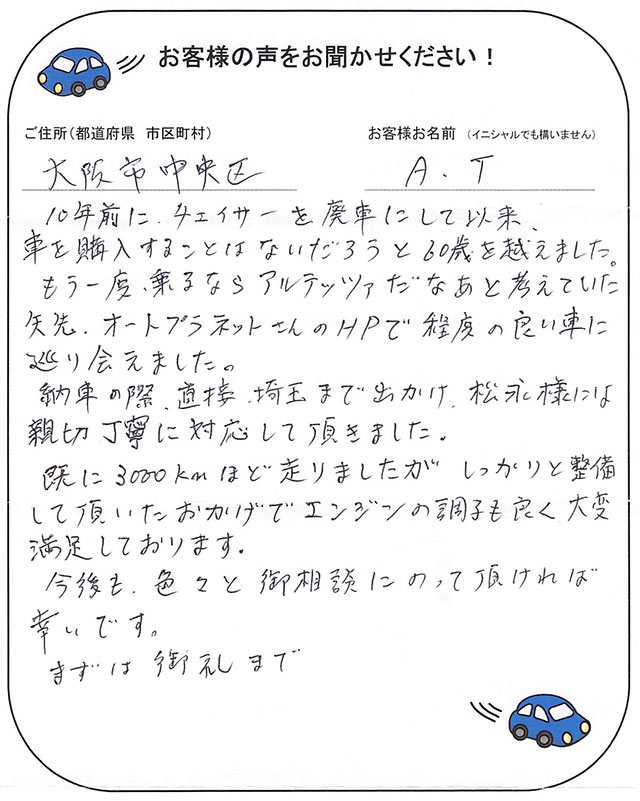 お客様の声をお聞かせください！
ご住所（都道府県 市区町村） お客様お名前 （イニシャルでも構いません）
大阪市中央区 A.T
10年前に、チェイサーを廃車にして以来、
車を購入することはないだろうと60歳を越えました。
もう一度、乗るならアルテッツァだなあと考えていた
矢先、オートプラネットさんのHPで程度の良い車に
巡り会えました。
納車の際、直接、埼玉まで出かけ、松永様には
親切丁寧に対応して頂きました。
既に3000kmほど走りましたが しっかりと整備
して頂いたおかげでエンジンの調子も良く大変
満足しております。
今後も、色々と御相談にのって頂ければ
幸いです。
まずは御礼まで